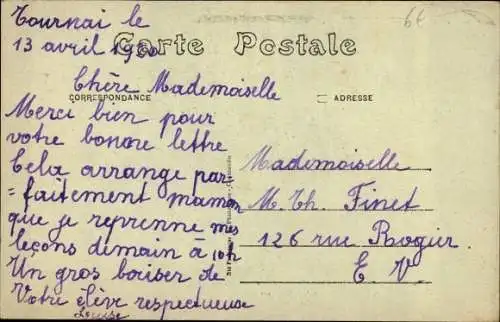 Tournai le
13 avril 1920
6E
Carte Postale
Chère Mademoiselle
CORRESPONDANCE
ADRESSE
Merci bien pour
votre bonne lettre
Cela arrange par-
=faitement maman
que je reprenne mes
leçons demain à 10h
Un gros baiser de
Votre élève respectueuse
Louise
Mademoiselle
M. Th. Finet
126 rue Rogier
E. V.